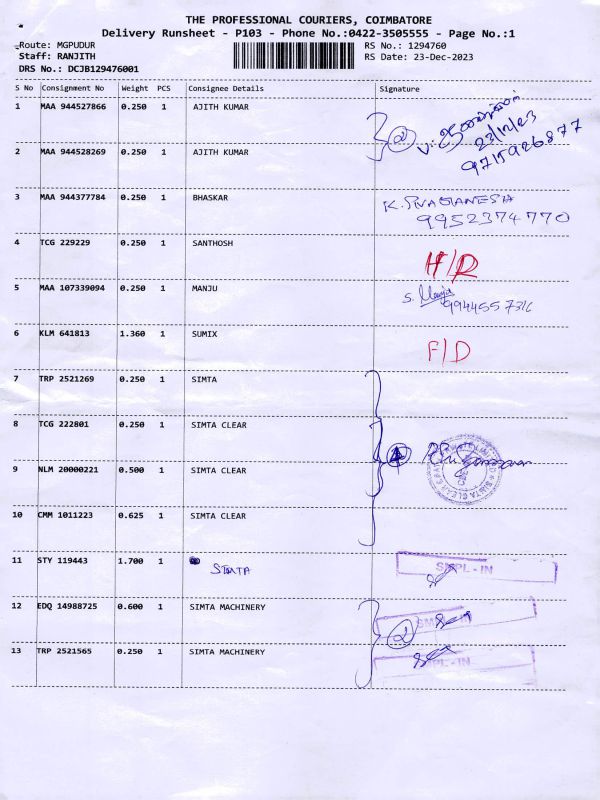 THE PROFESSIONAL COURIERS, COIMBATORE
Delivery Runsheet - P103 - Phone No.:0422-3505555 - Page No.:1
Route: MGPUDUR
RS No.: 1294760
Staff: RANJITH
RS Date: 23-Dec-2023
DRS No.: DCJB129476001
S No Consignment No Weight PCS Consignee Details Signature
1 MAA 944527866 0.250 1 AJITH KUMAR
23/12/23
9715926877
2 MAA 944528269 0.250 1 AJITH KUMAR
3 MAA 944377784 0.250 1 BHASKAR K. SIVAGANESH
9952374770
4 TCG 229229 0.250 1 SANTHOSH H/D
5 MAA 107339094 0.250 1 MANJU S. Manju
6 KLM 641813 1.360 1 SUMIX F/D
7 TRP 2521269 0.250 1 SIMTA
8 TCG 222801 0.250 1 SIMTA CLEAR
9 NLM 20000221 0.500 1 SIMTA CLEAR 4
10 CMM 1011223 0.625 1 SIMTA CLEAR
11 STY 119443 1.700 1 SIMTA SMPL-IN
12 EDQ 14988725 0.600 1 SIMTA MACHINERY 2
13 TRP 2521565 0.250 1 SIMTA MACHINERY SMPL-IN